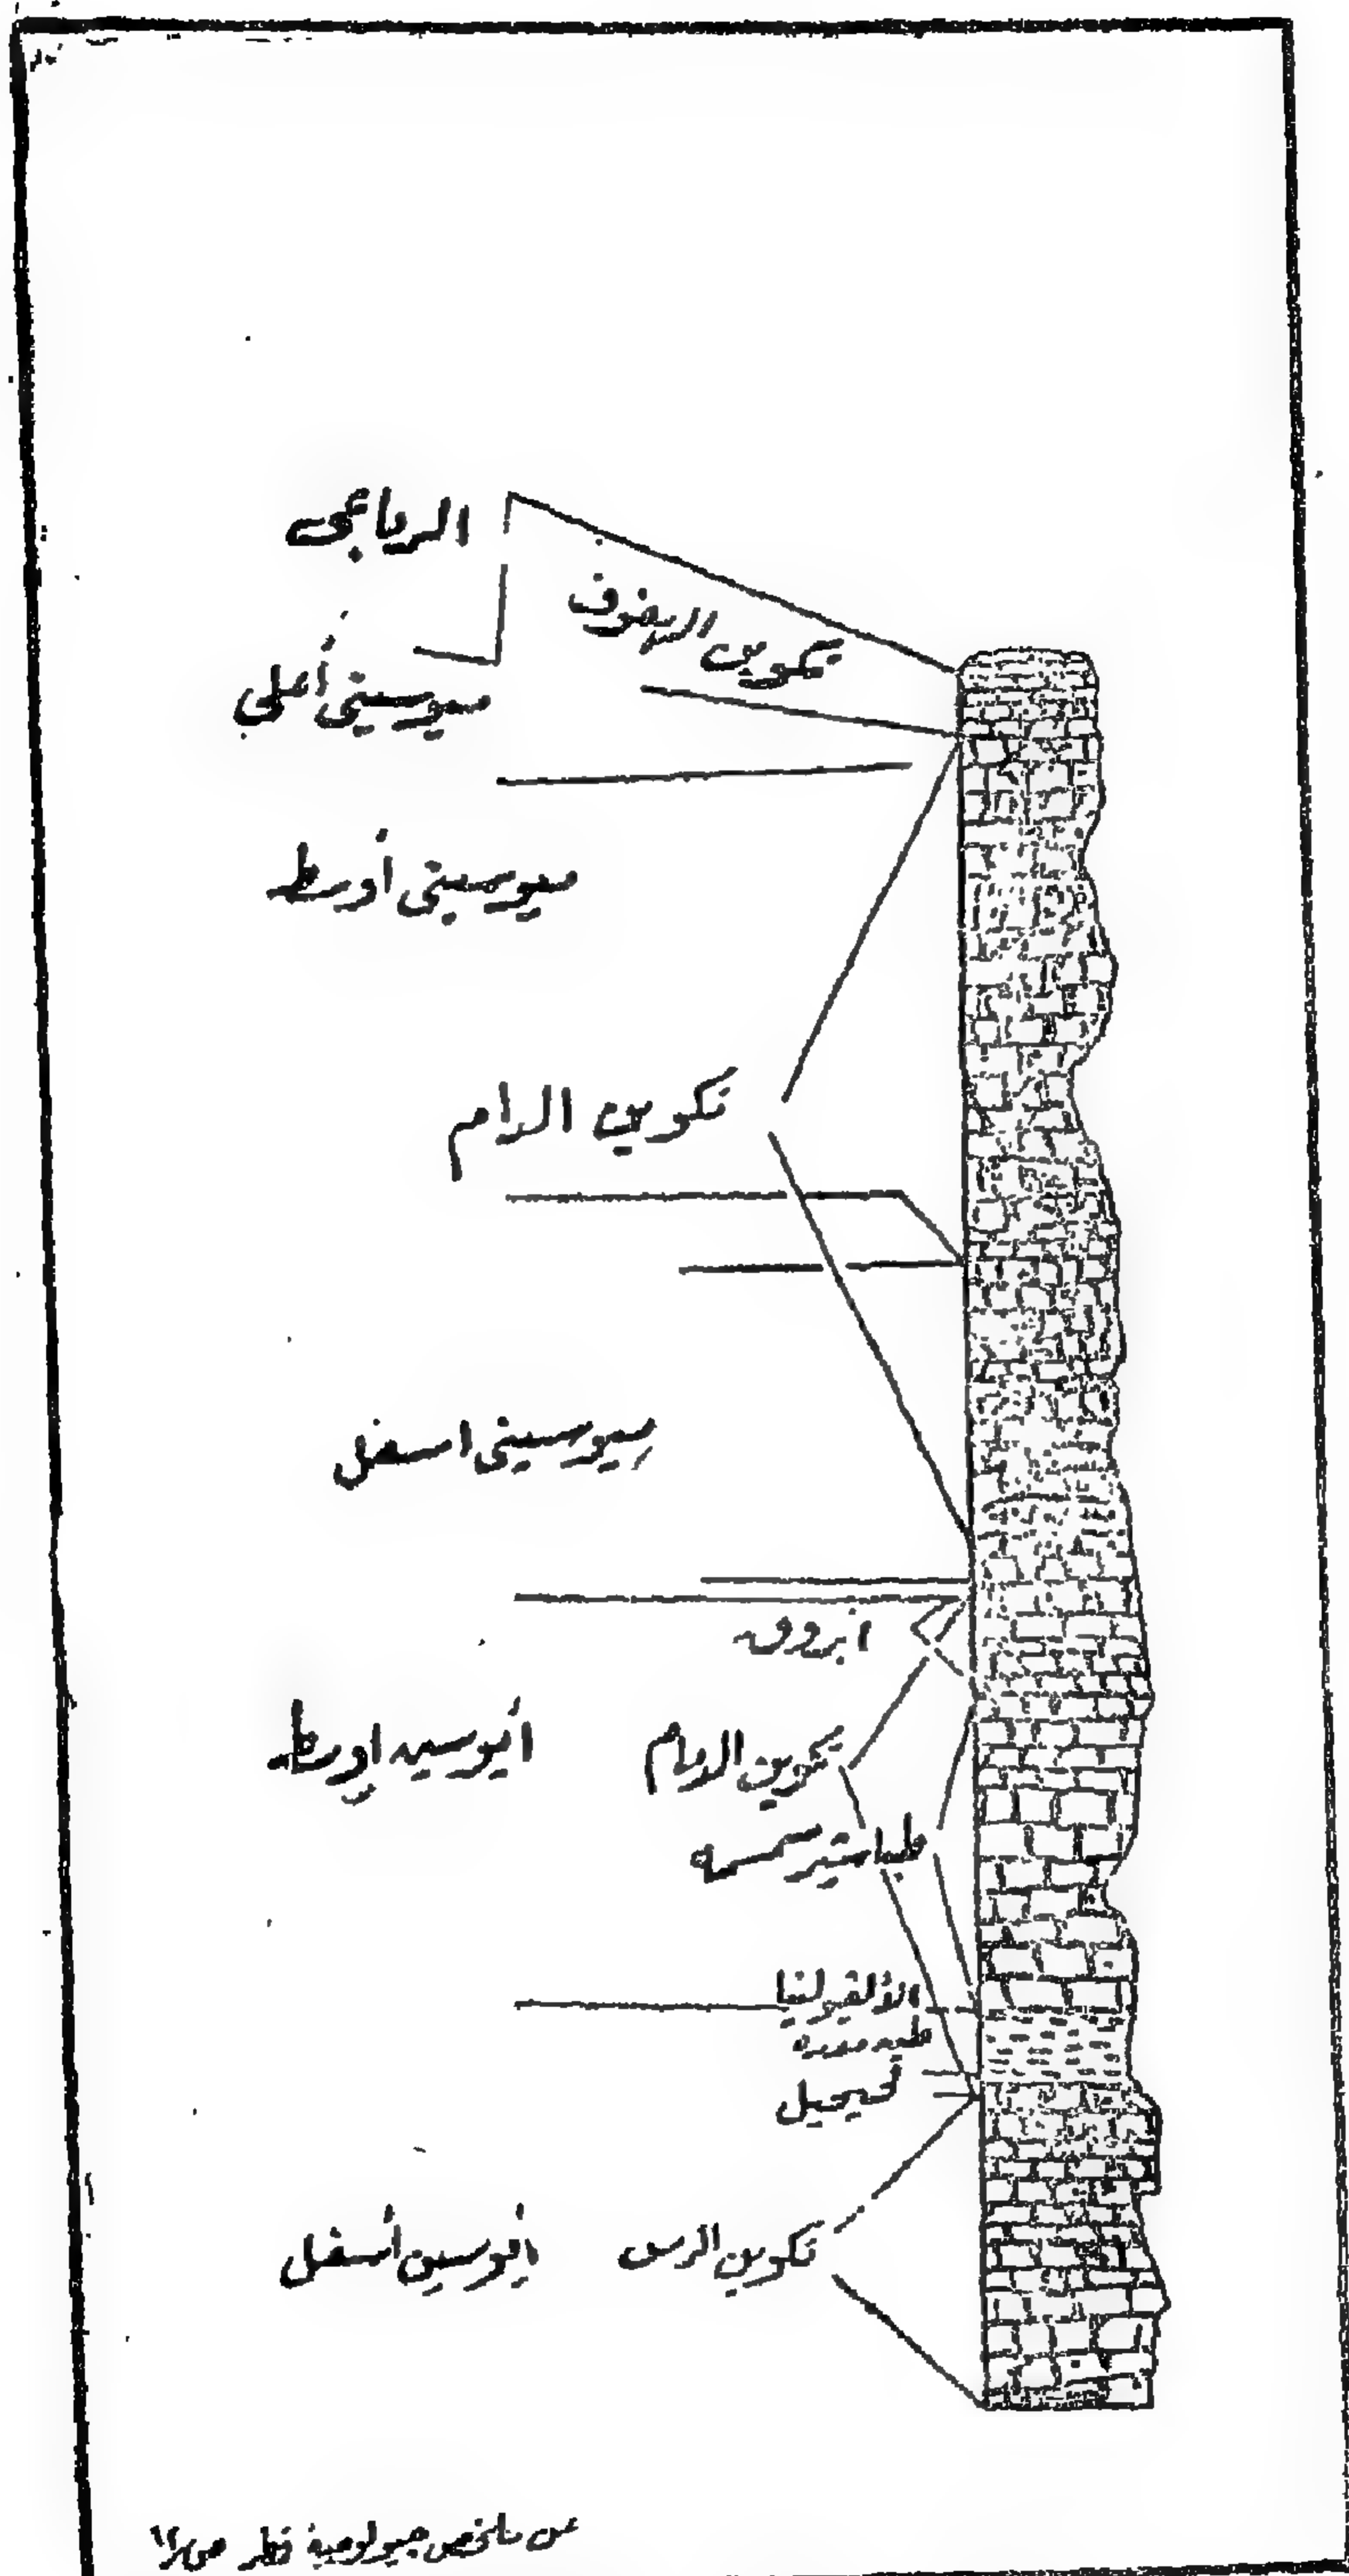 الرباعى
تكوين الهفوف
ميوسينى أعلى
ميوسينى أوسط
تكوين الدام
ميوسينى اسفل
ابروق
أيوسين اوسط
تكوين الدمام
طباشير سمسمه
الألفيولينا
طين
أيوسين أسفل
تكوين الرس
عن ملخص جيولوجية قطر ص